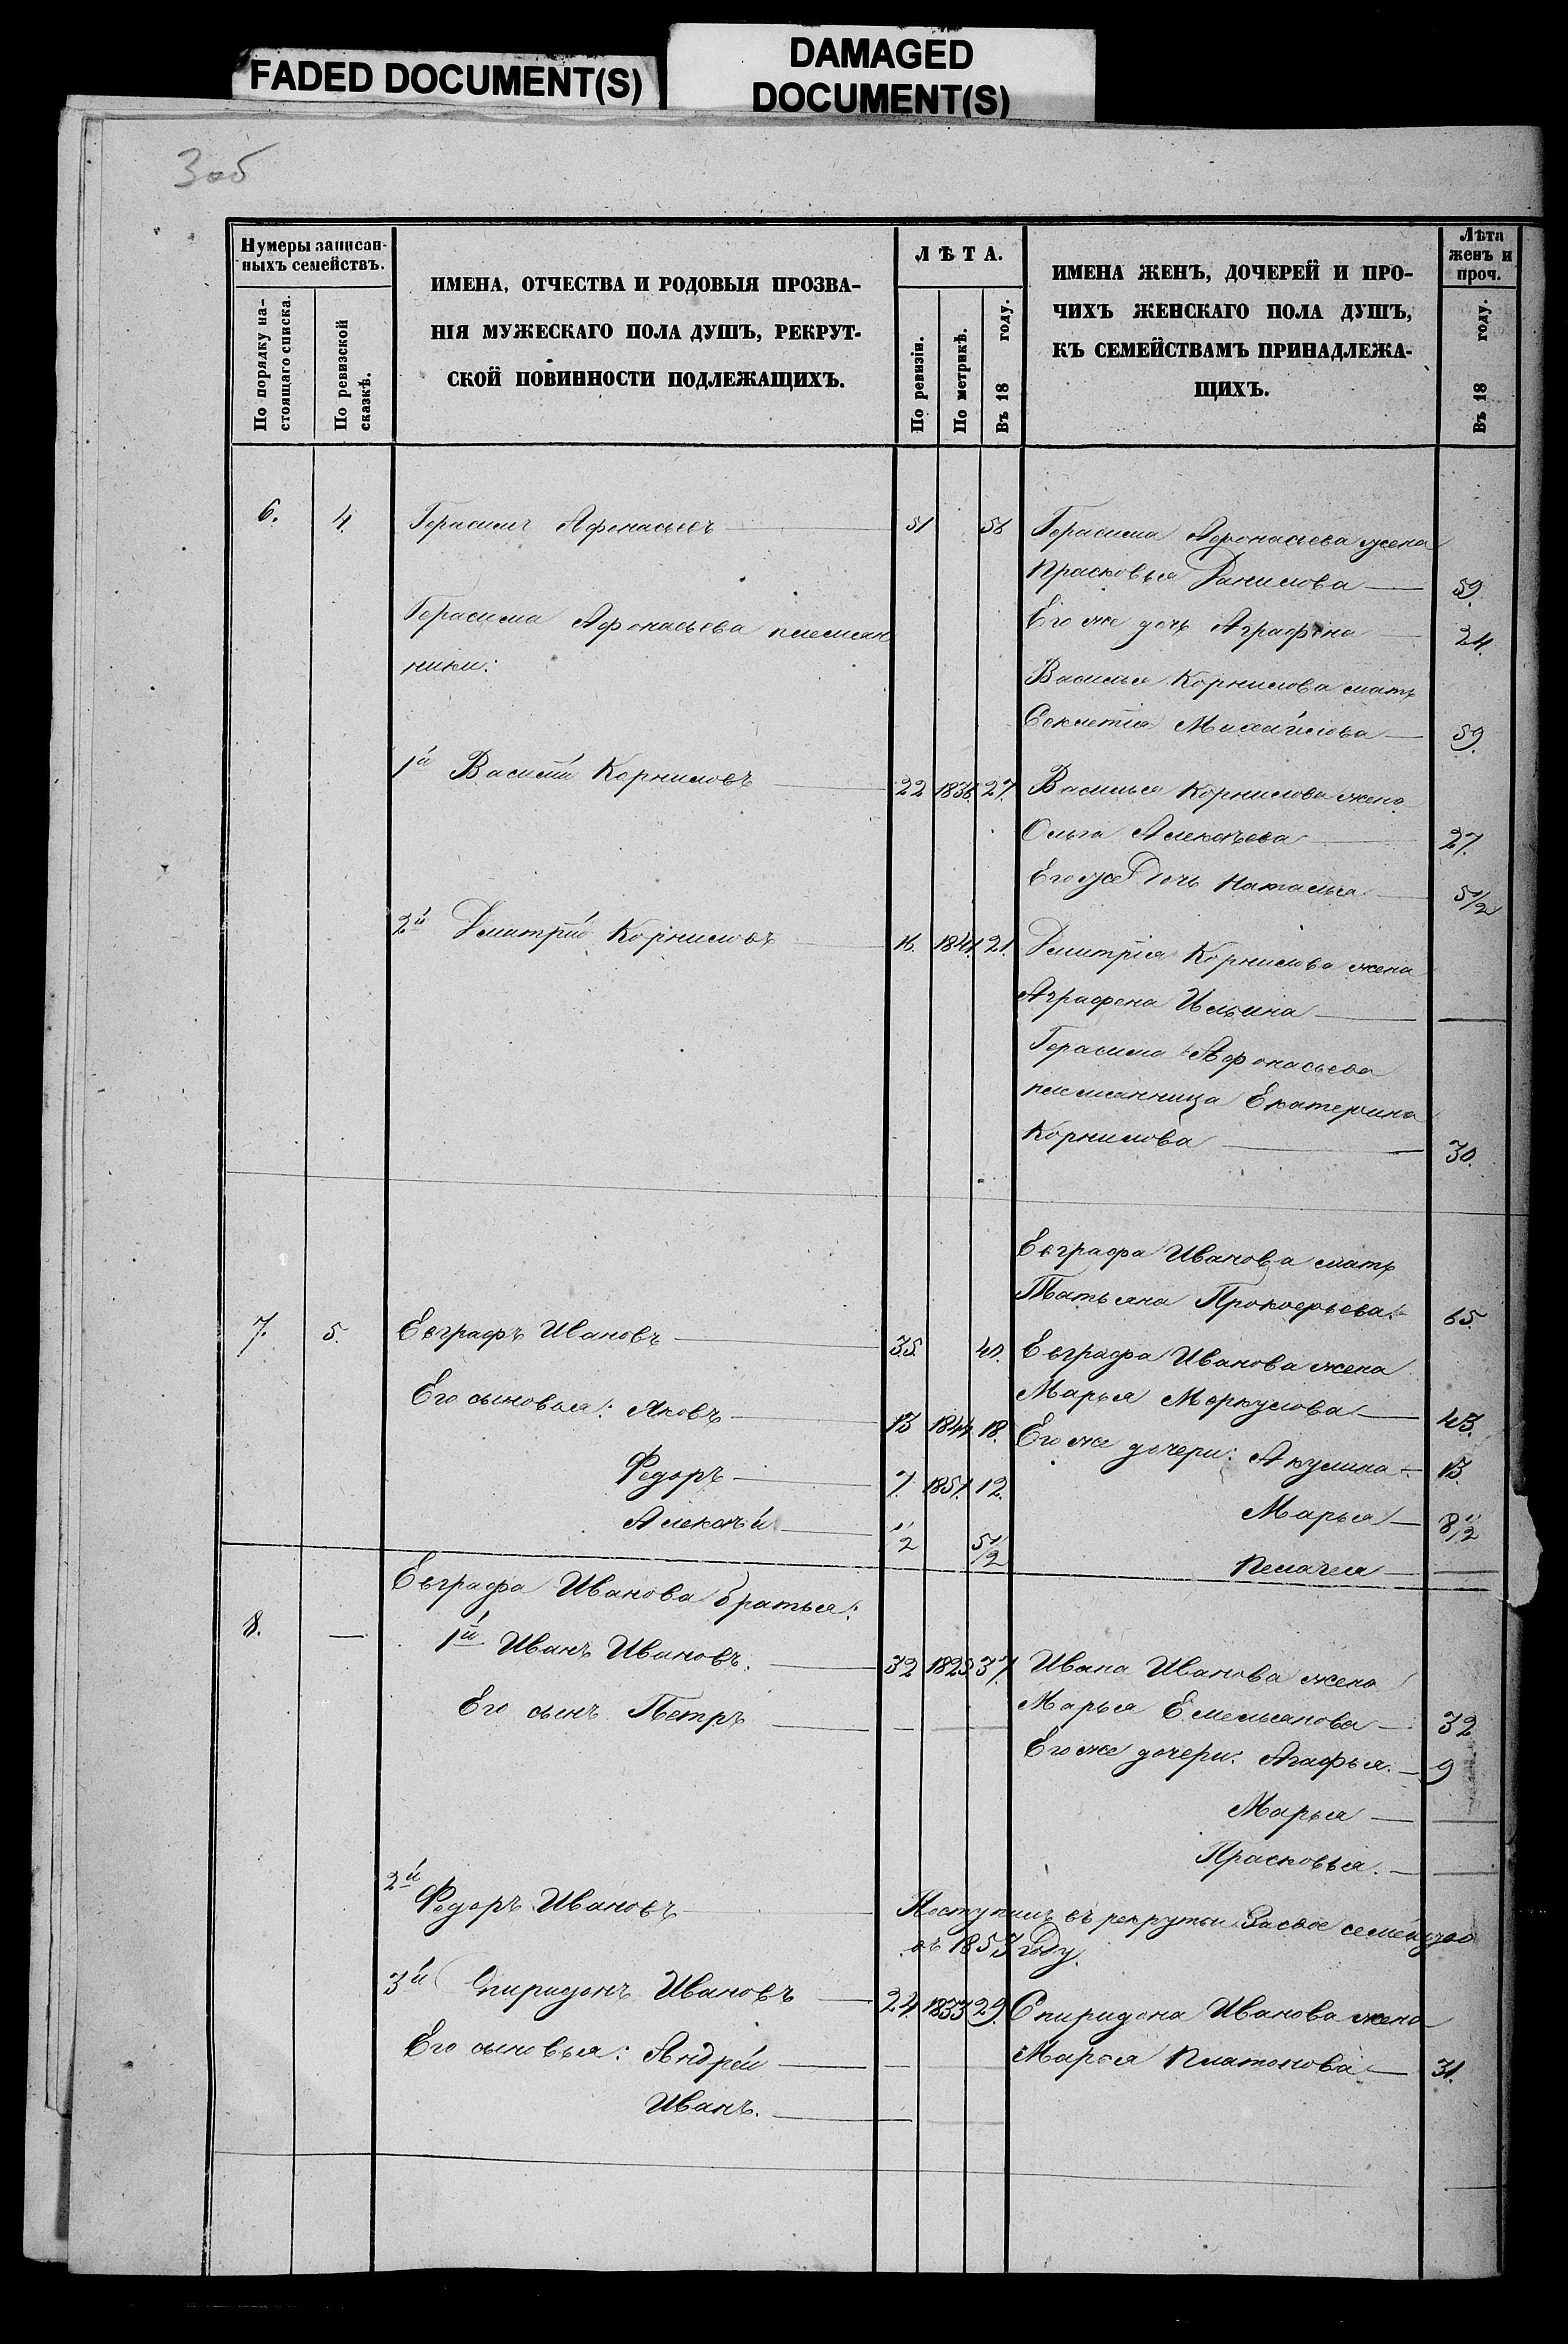 FADED DOCUMENT(S)
DAMAGED
DOCUMENT(S)
3 об
Нумеры записан-
ныхъ семействъ.
По порядку на-
стоящаго списка.
По ревизской
сказкѣ.
ИМЕНА, ОТЧЕСТВА И РОДОВЫЯ ПРОЗВА-
НІЯ МУЖЕСКАГО ПОЛА ДУШЪ, РЕКРУТ-
СКОЙ ПОВИННОСТИ ПОДЛЕЖАЩИХЪ.
ЛѢТА.
По ревизіи.
По метрикѣ.
Въ 18 году.
ИМЕНА ЖЕНЪ, ДОЧЕРЕЙ И ПРО-
ЧИХЪ ЖЕНСКАГО ПОЛА ДУШЪ,
КЪ СЕМЕЙСТВАМЪ ПРИНАДЛЕЖА-
ЩИХЪ.
Лѣта
женъ и
проч.
Въ 18 году.
6. 4. Герасимъ Афонасьевъ 51 56
Герасима Афонасьева жена
Прасковья Данилова 59.
Его же дочь Аграфена 24.
Герасима Афонасьева племян
ники:
Василья Корнилова мать
Секлетія Михайлова 59.
1й Василій Корниловъ 22 27.
Василья Корнилова жена
Ольга Алексѣева 27.
Его же Дочь Наталья 5 1/2
2й Дмитрій Корниловъ 16. 1841. 21.
Дмитрія Корнилова жена
Аграфена Ильина
Герасима Афонасьева
племянница Екатерина
Корнилова 30.
Евграфа Иванова мать
Татьяна Прокофьева 65.
7. 5. Евграфъ Ивановъ 35. 40.
Евграфа Иванова жена
Марья Меркулова 43.
Его сыновья: Яковъ 13 1844 18.
Его же дочери: Акулина 13.
Федоръ 7. 1851. 12.
Марья 8 1/2
Алексѣй 1/2 5 1/2
Пелагея
Евграфа Иванова братья:
8. 1й Иванъ Ивановъ. 32 1825 37.
Ивана Иванова жена
Марья Емельянова 32
Его сынъ Петръ
Его же дочери: Агафья. 9
Марья
Прасковья.
2й Федоръ Ивановъ
Поступилъ въ рекруты За свое семейство
въ 1853 Году.
3й Спиридонъ Ивановъ 24. 1833 29.
Спиридона Иванова жена
Марья Платонова 31.
Его сыновья: Андрей
Иванъ.